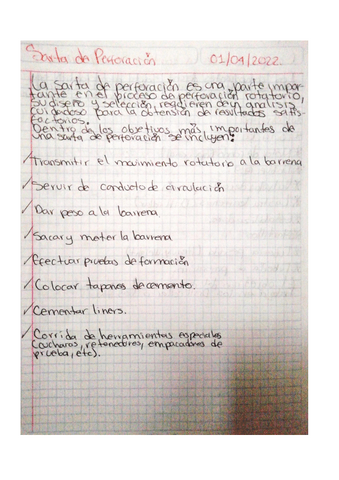 Sarta de Perforación 01/09/2022.
La sarta de perforación es una parte impor
tante en el proceso de perforación rotatorio,
su diseño y selección, requieren de un analisis
cuidadoso para la obtención de resultados satis-
factorios.
Dentro de los objetivos más importantes de
una sarta de perforación se incluyen:
/Transmitir el movimiento rotatorio a la barrena
/Servir de conducto de circulación
/Dar peso a la barrena
/Sacar y meter la barrena
/Efectuar pruebas de formación
/Colocar tapones de cemento.
/Cementar liners.
/Corrida de herramientas especiales
(cucharos, retenedores, empacadores de
prueba, etc).